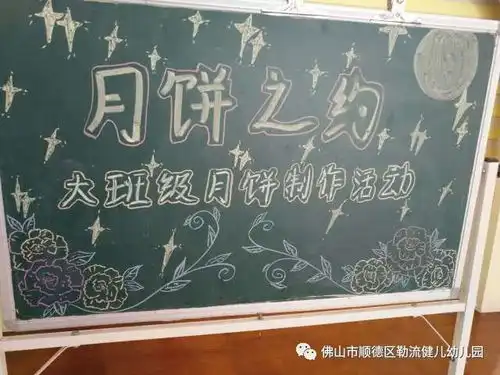 月饼之约
大班级月饼制作活动
佛山市顺德区勒流健儿幼儿园